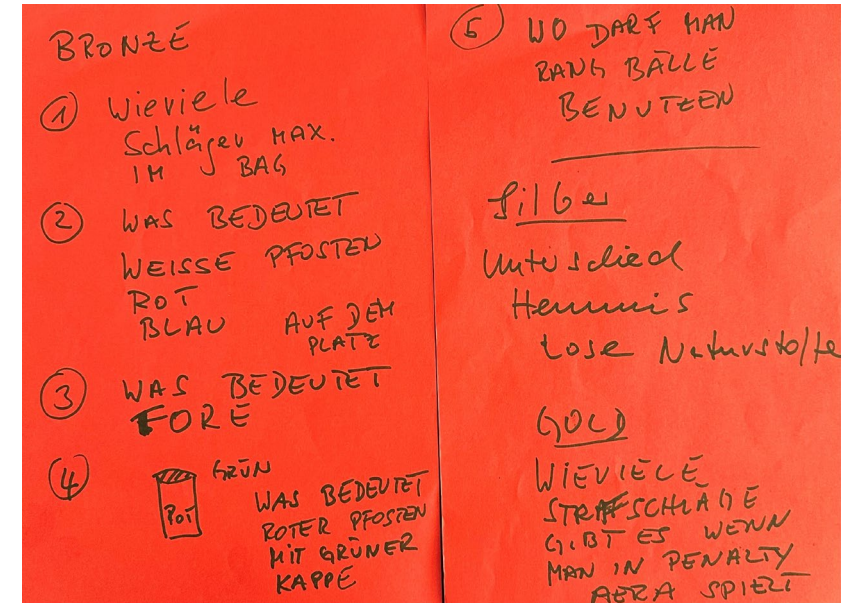 BRONZE
① Wieviele
Schläger MAX.
IM BAG
② WAS BEDEUTET
WEISSE PFOSTEN
ROT
BLAU AUF DEM
PLATZ
③ WAS BEDEUTET
FORE
④ ROT GRÜN
WAS BEDEUTET
ROTER PFOSTEN
MIT GRÜNER
KAPPE
⑤ WO DARF MAN
RANG BÄLLE
BENUTZEN
Silber
Unterschied
Hemmnis
Lose Naturstoffe
GOLD
WIEVIELE
STRAFSCHLÄGE
GIBT ES WENN
MAN IN PENALTY
AERA SPIELT